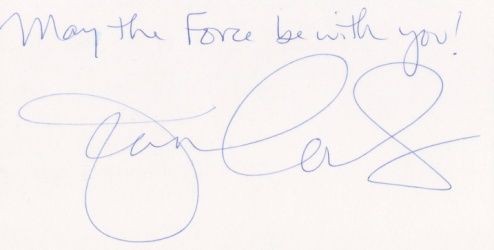 May the Force be with you!